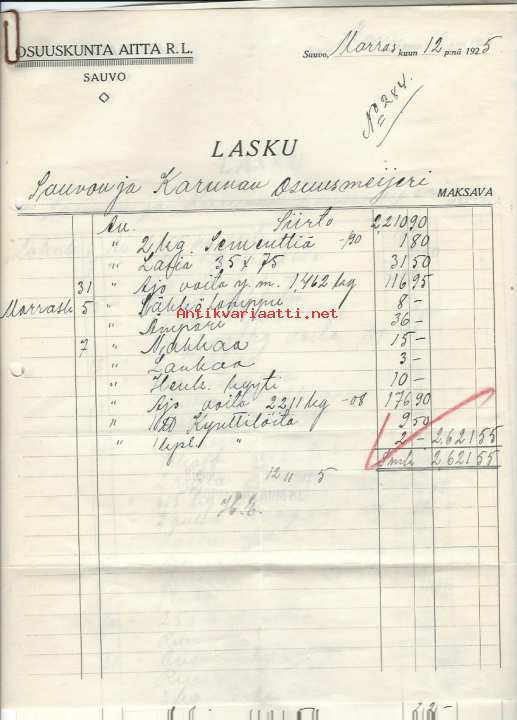 OSUUSKUNTA AITTA R.L.
SAUVO
Sauvo, Marras kuun 12 p:nä 1925
No 284.
LASKU
Sauvon ja Karunan Osuusmeijeri MAKSAVA
Siirto 2210 90
" 2 kg Sementtiä -/90 1 80
" 3,5 x 75 31 50
31 " Ajo voita y.m. 1,462 kg 116 95
Marrask. 5 " 8 -
" Ampäri 36 -
7 " Nahkaa 15 -
" Lankaa 3 -
" Henk. kyyti 10 -
" Ajo voita 2211 kg -08 176 90
" Kynttilöitä 9 50
" 1 kpl. " 2 - 2,621 55
Smk. 2621 55
12 11 5
Antikvariaatti.net